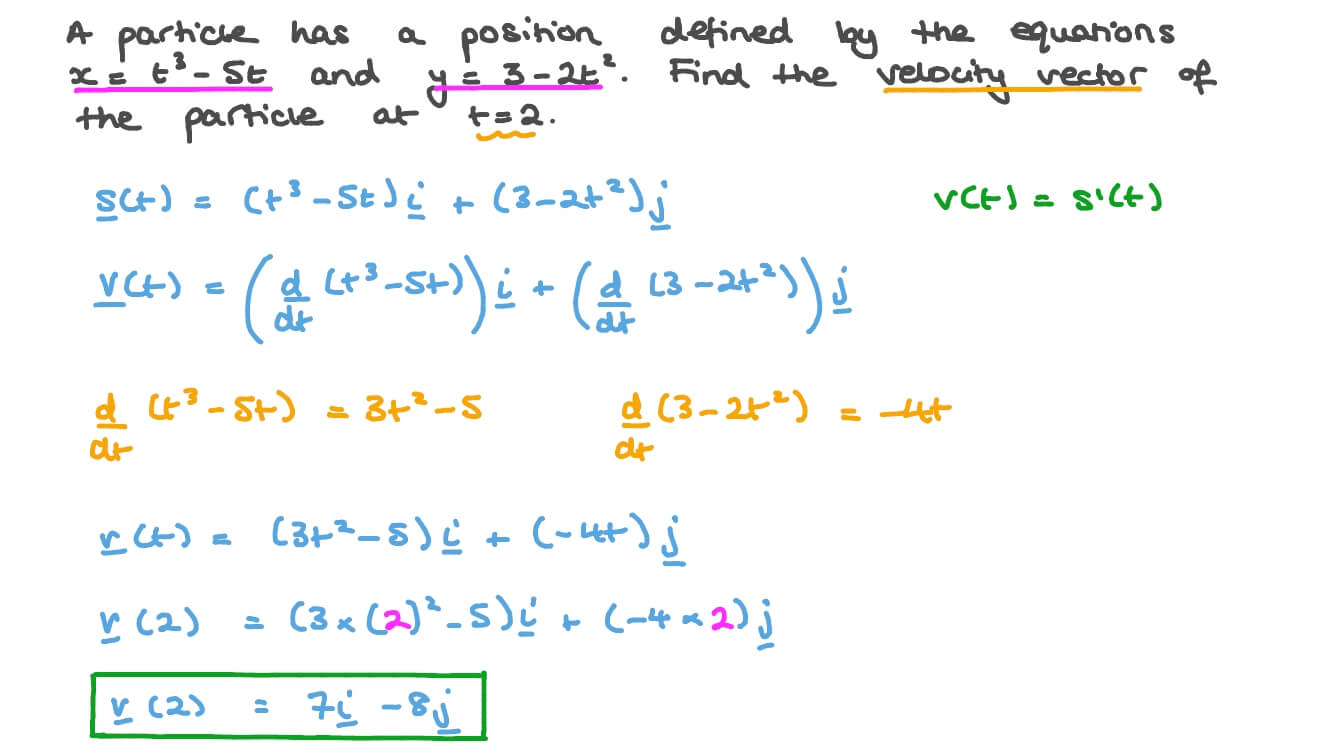 A particle has a position defined by the equations
x = t³ - 5t and y = 3 - 2t². Find the velocity vector of
the particle at t = 2.
s(t) = (t³ - 5t) i + (3 - 2t²) j
v(t) = s'(t)
v(t) = (d/dt (t³ - 5t)) i + (d/dt (3 - 2t²)) j
d/dt (t³ - 5t) = 3t² - 5
d/dt (3 - 2t²) = -4t
v(t) = (3t² - 5) i + (-4t) j
v(2) = (3 × (2)² - 5) i + (-4 × 2) j
v(2) = 7i - 8j